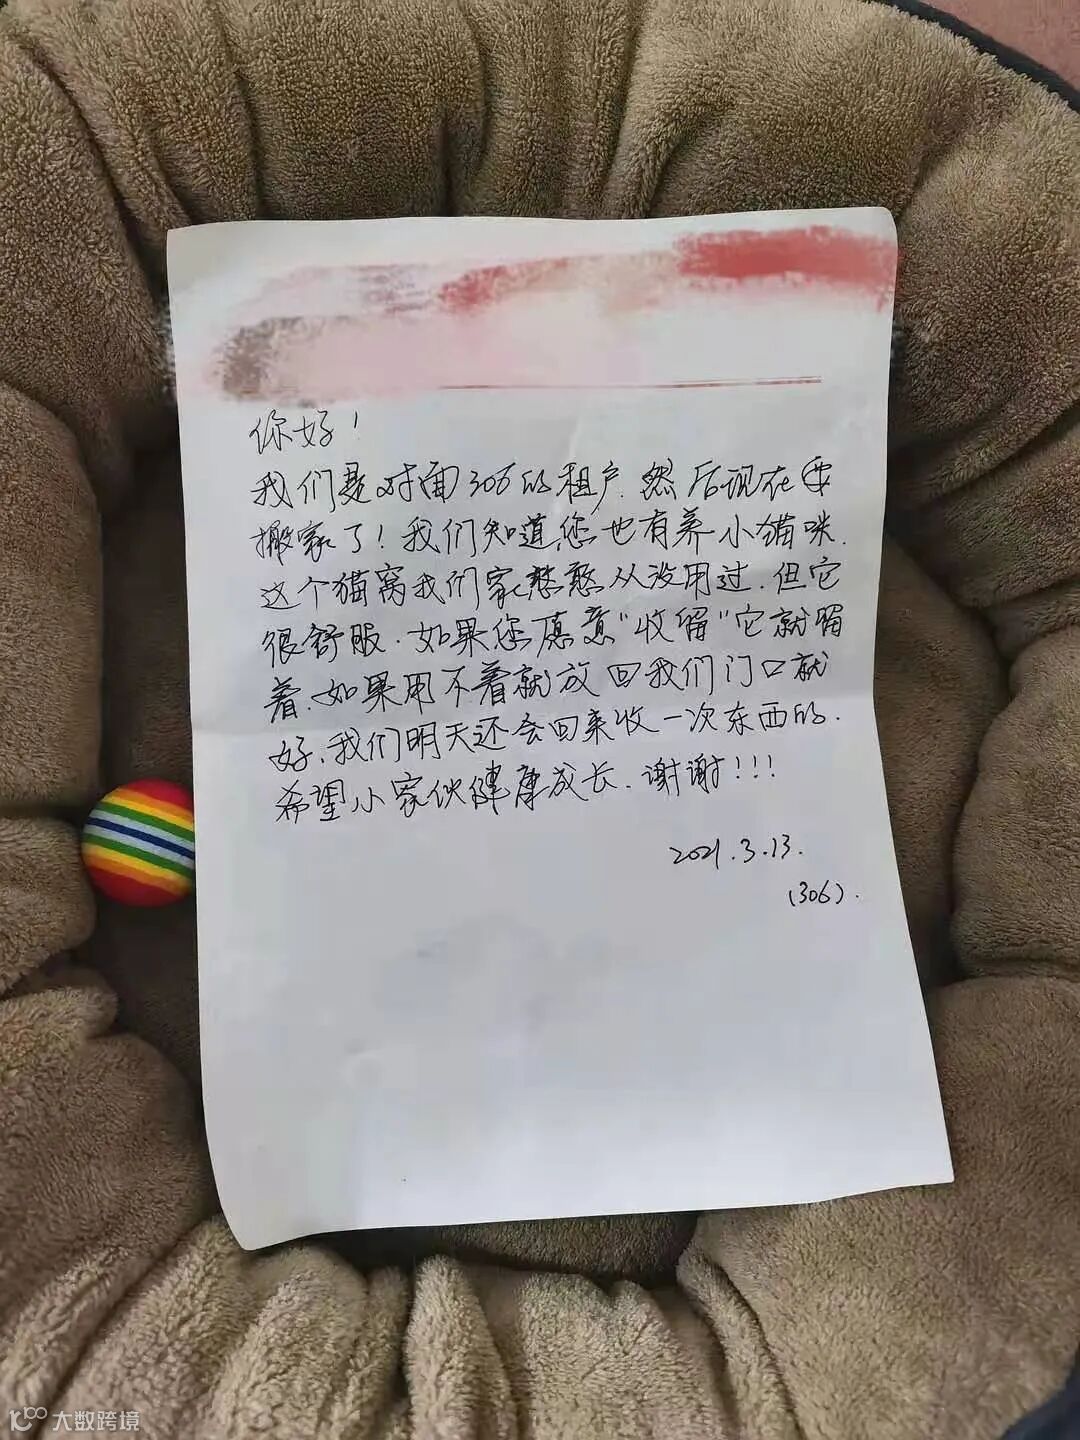 你好！
我们是对面306的租户.然后现在要
搬家了！我们知道您也有养小猫咪.
这个猫窝我们家憨憨从没用过.但它
很舒服.如果您愿意“收留”它就留
着.如果用不着就放回我们门口就
好.我们明天还会回来收一次东西的.
希望小家伙健康成长.谢谢！！！
2021.3.13.
(306).
大数跨境